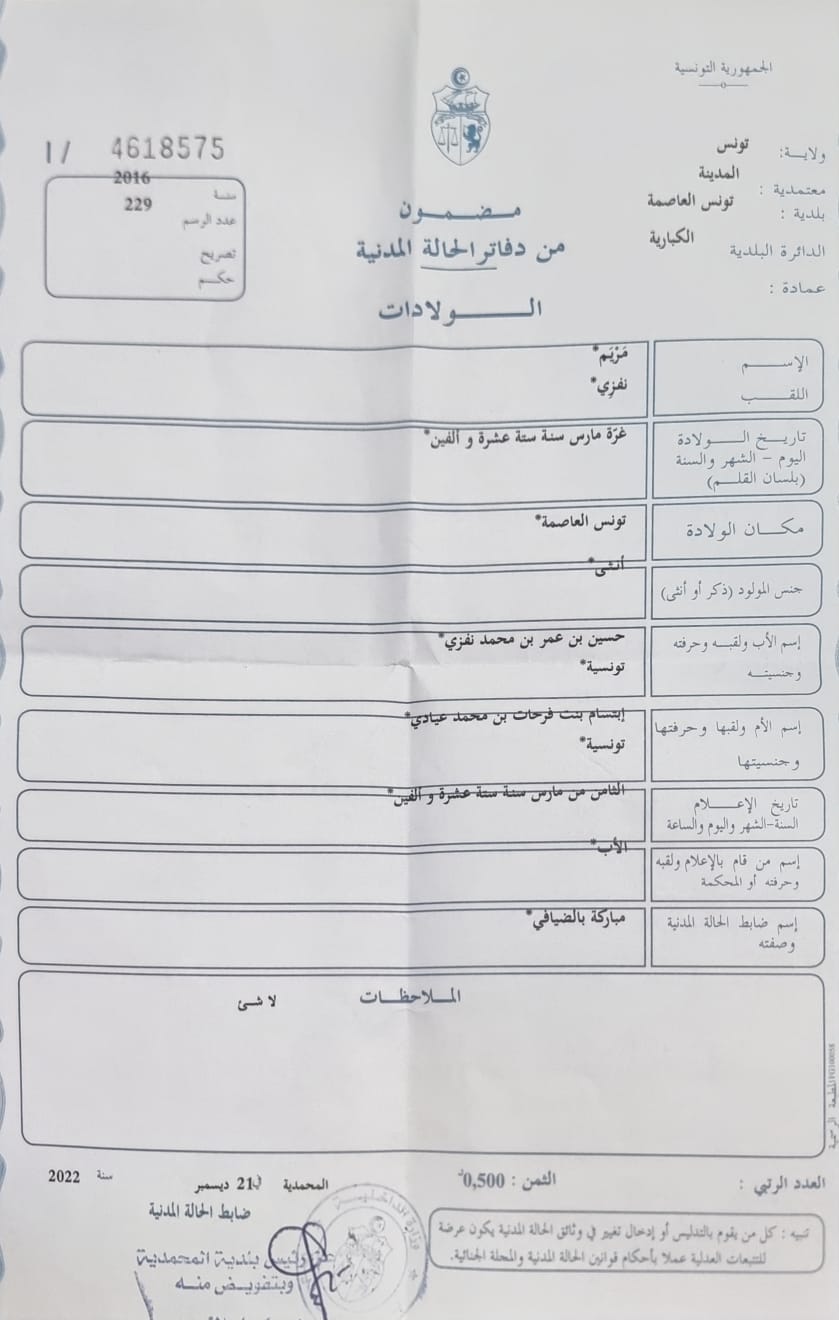 الجمهورية التونسية
ولايـة: تونس
معتمدية : المدينة
بلدية : تونس العاصمة
الدائرة البلدية الكبارية
عمادة :
4618575 /I
سنة 2016
عدد الرسم 229
تصريح
حكم
مضمون
من دفاتر الحالة المدنية
الولادات
الإسم مَرْيَم*
اللقب نفزِي*
تاريخ الولادة غرّة مارس سنة ستة عشرة و ألفين*
اليوم – الشهر والسنة
(بلسان القلم)
مكان الولادة تونس العاصمة*
جنس المولود (ذكر أو أنثى) أنثى*
إسم الأب ولقبه وحرفته حسين بن عمر بن محمد نفزي*
وجنسيته تونسية*
إسم الأم ولقبها وحرفتها إبتسام بنت فرحات بن محمد عيادي*
وجنسيتها تونسية*
تاريخ الإعلام الثامن من مارس سنة ستة عشرة و ألفين*
السنة-الشهر واليوم والساعة
إسم من قام بالإعلام ولقبه الأب*
وحرفته أو المحكمة
إسم ضابط الحالة المدنية مباركة بالضيافي*
وصفته
الملاحظات لا شئ
المطبعة الرسمية
العدد الرتبي :
الثمن : 0,500د
المحمدية في 21 ديسمبر سنة 2022
ضابط الحالة المدنية
تنبيه : كل من يقوم بالتدليس أو إدخال تغيير في وثائق الحالة المدنية يكون عرضة
للتتبعات العدلية عملا بأحكام قوانين الحالة المدنية والمجلة الجنائية.
عن رئيس بلدية المحمدية
وبتفويض منه
وزارة الداخلية